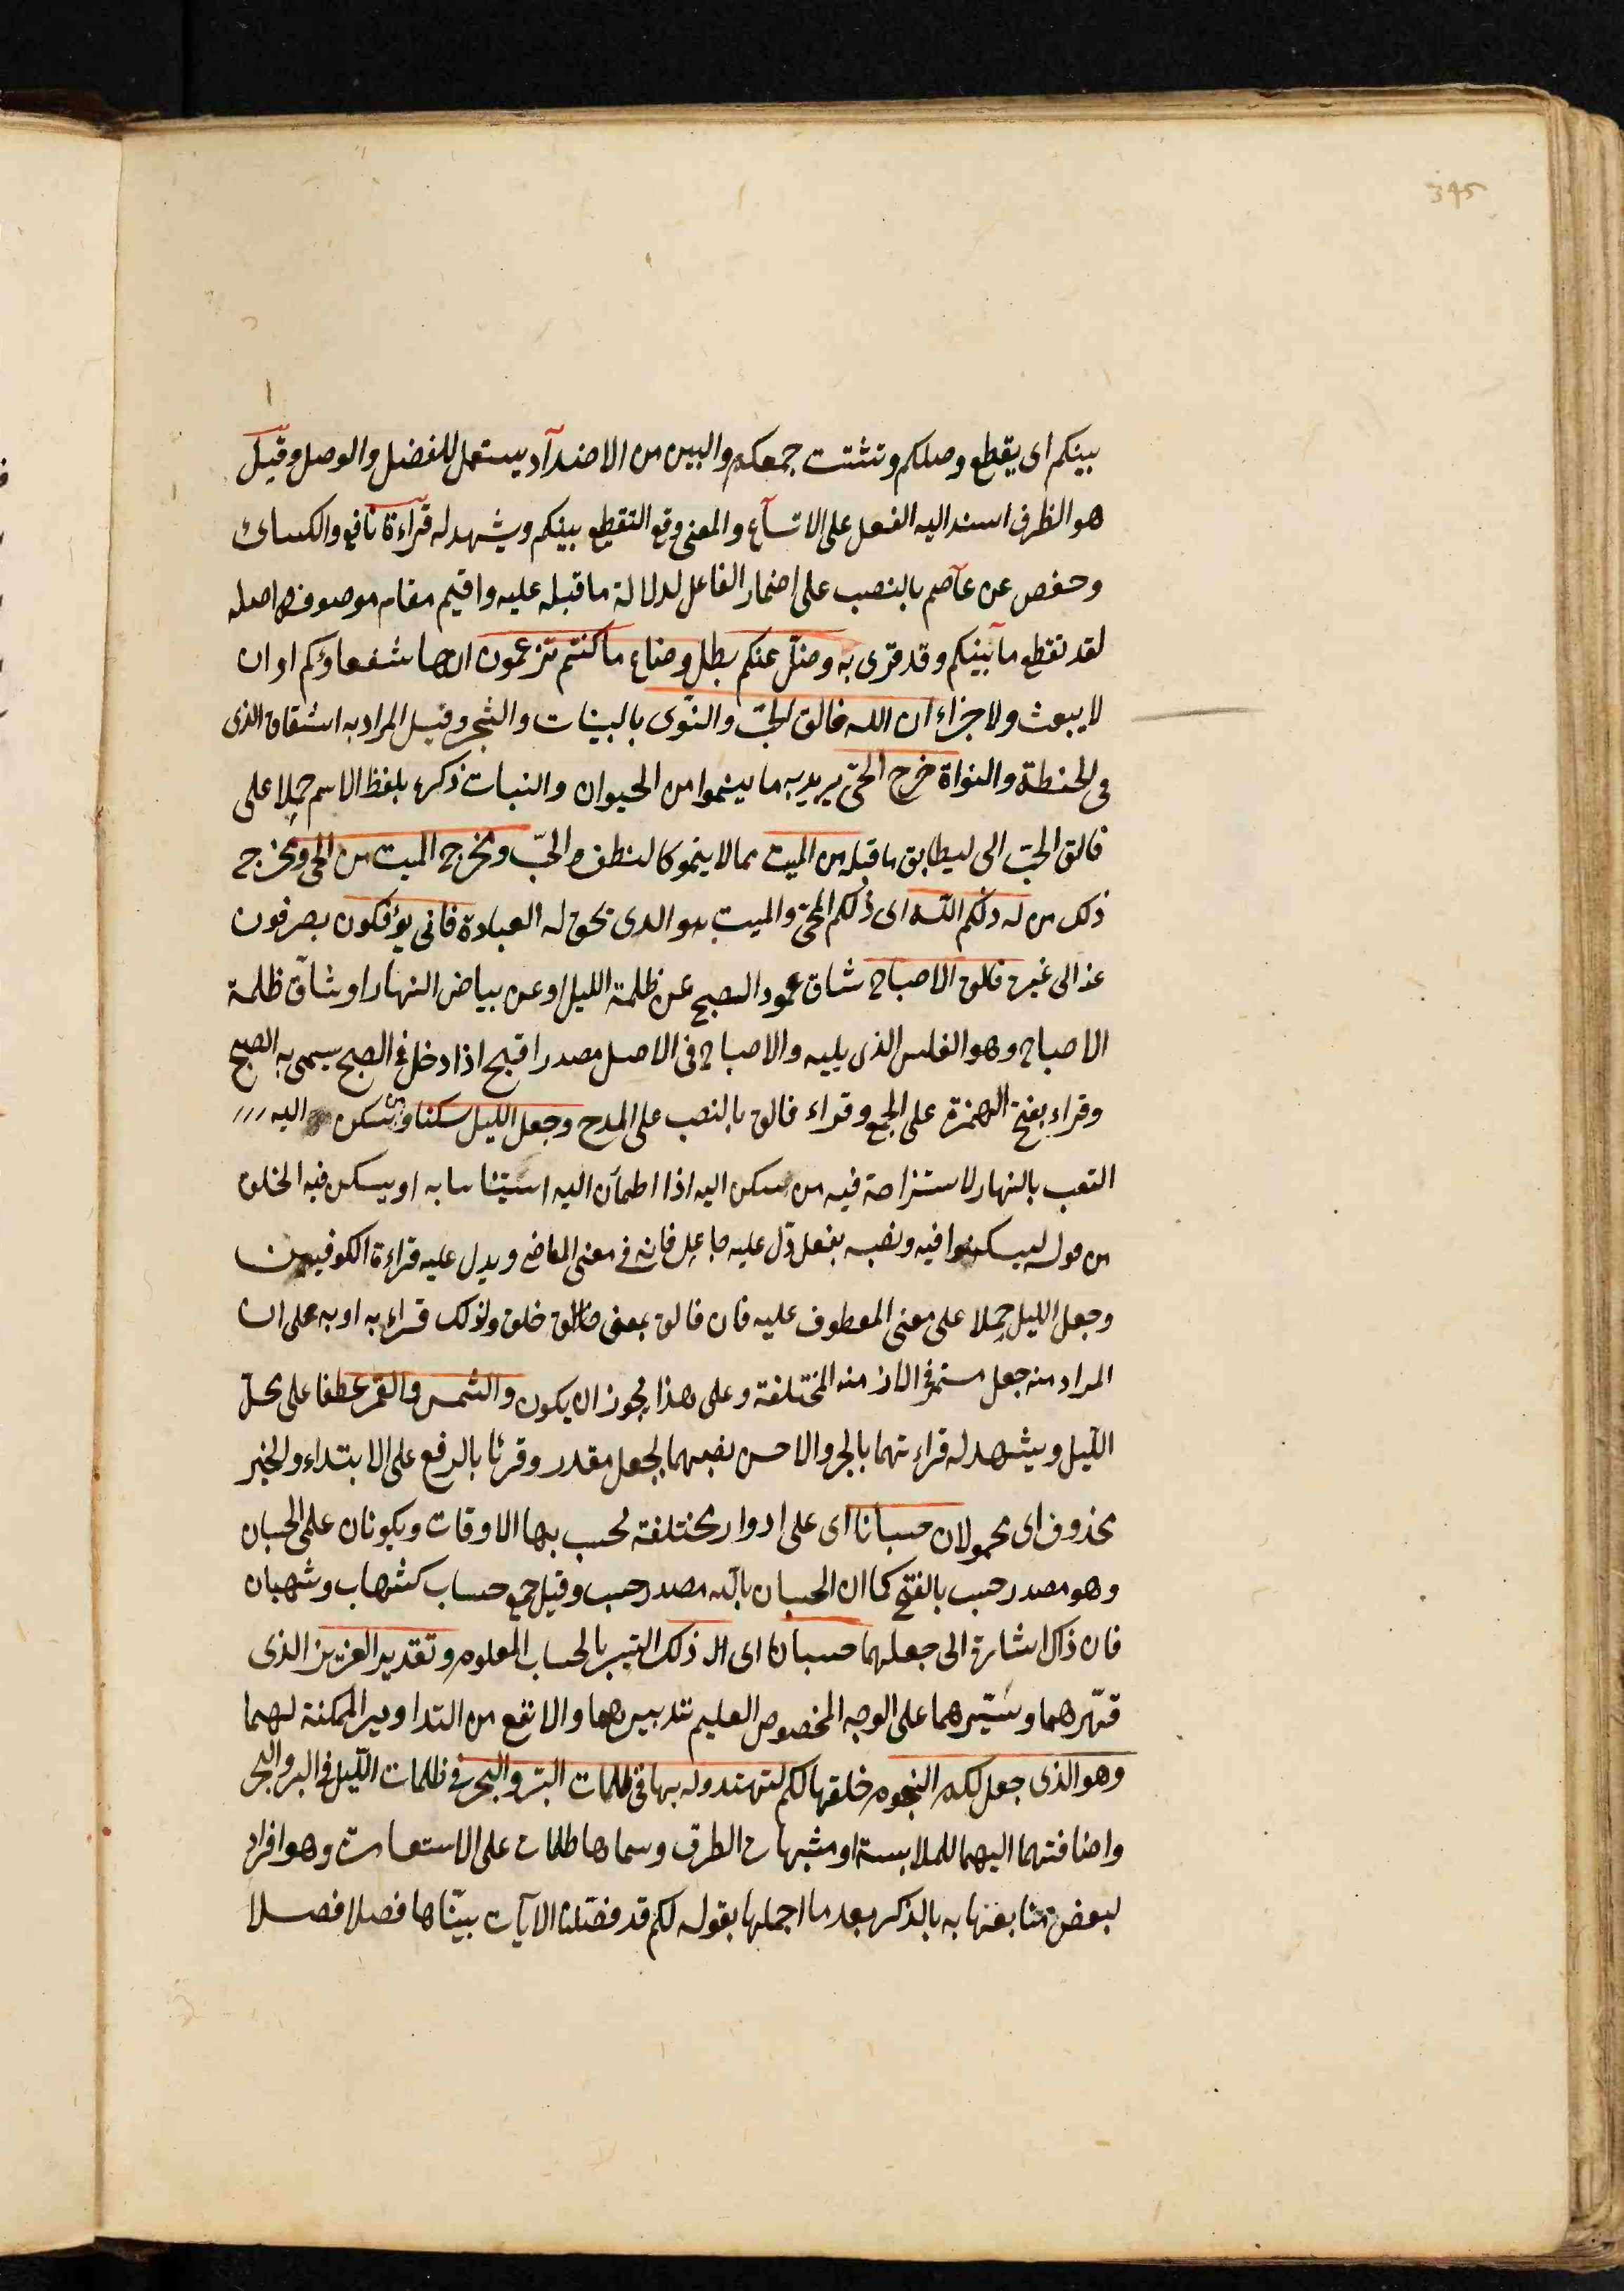 345
بينكم اى يقطع وصلكم وتشتت جمعكم والبين من الاضدآد يستعمل للفضل والوصل وقيل
هو الظرف اسند اليه الفعل على الاتسآع والمعنى وقع التقطع بينكم ويشهد له قرآءة نافع والكسائ
وحفص عن عآصم بالنصب على اضمار الفاعل لدلالة ماقبله عليه واقيم مقام موصوفه واصله
لقد تقطع مابينكم وقد قرى به وضلّ عنكم بطل وضاع ماكنتم تزعمون انها شفعاؤكم اوان
لا يبعث ولا جزاء ان الله فالق الحبّ والنوّى بالبينات والشجر وقيل المراد به اشقاق الذى
فى الحنطة والنواة خرج الحىّ يريد به ما ينموا من الحيوان والنبات ذكره بلفظ الاسم حملا على
فالق الحبّ الى ليطابق ماقبله من الميت مما لا ينمو كالنطف والحبّ ومخرج الميت من الحى ومخرج
ذلك من له ذلكم اللّه اى ذلكم المحى والميت هو الذى يحق له العبادة فانى يؤفكون بصرفون
عنه الى غيره فالق الاصباح شاق عمود الصبح عن ظلمة الليل او عن بياض النهار او شآق ظلمة
الاصباح وهو الغلس الذى يليه والاصباح فى الاصل مصدر اقبح اذا دخل فى الصبح سمى به الصبح
وقراء بفتح الهمزة على الجمع وقراء فالق بالنصب على المدح وجعل الليل سكنا ويسكن اليه
التعب بالنهار لاستراحة فيه من سكن اليه اذا اطمآن اليه استيناسا به او يسكن فيه الخلق
من قوله ليسكنوا فيه ونصبه بفعل دلّ عليه جاعل فانه فى معنى الماضى ويدل عليه قراءة الكوفيين
وجعل الليل حملا على معنى المعطوف عليه فان فالق بمعنى فالق خلق ولذلك قراء به او به على ان
المراد منه جعل مستمر فى الازمنه المختلفة وعلى هذا يجوز ان يكون والشمس والقمر عطفا على محلّ
الليل ويشهد له قراءتهما بالجر والاحسن نصبهما بجعل مقدر وقرئا بالرفع على الابتداء والخبر
محذوف اى محمولان حسبانا اى على ادوار مختلفة يحسب بها الاوقات ويكونان على الحسبان
وهو مصدر حسب بالفتح كما ان الحسبان بالكسر مصدر حسب وقيل جمع حساب كشهاب وشهبان
فان ذاك اشارة الى جعلهما حسبانا اى الى ذلك التيسير بالحساب المعلوم وتقدير العزيز الذى
قهّرهما وسيّرهما على الوجه المخصوص العليم بتدبيرهما والانفع من التداوير الممكنة لهما
وهو الذى جعل لكم النجوم خلقها لكم لتهتدوا بها فى ظلمات البرّ والبحر فى ظلمات الليل فى البر والبحر
واضافتهما اليهما للملابسة او مشبهات الطرق وسماها ظلمات على الاستعارة وهو افراد
لبعض منافعها به بالذكر بعد ما اجملها بقوله لكم قد فصّلنا الآيات بيّناها فصلا فصلا